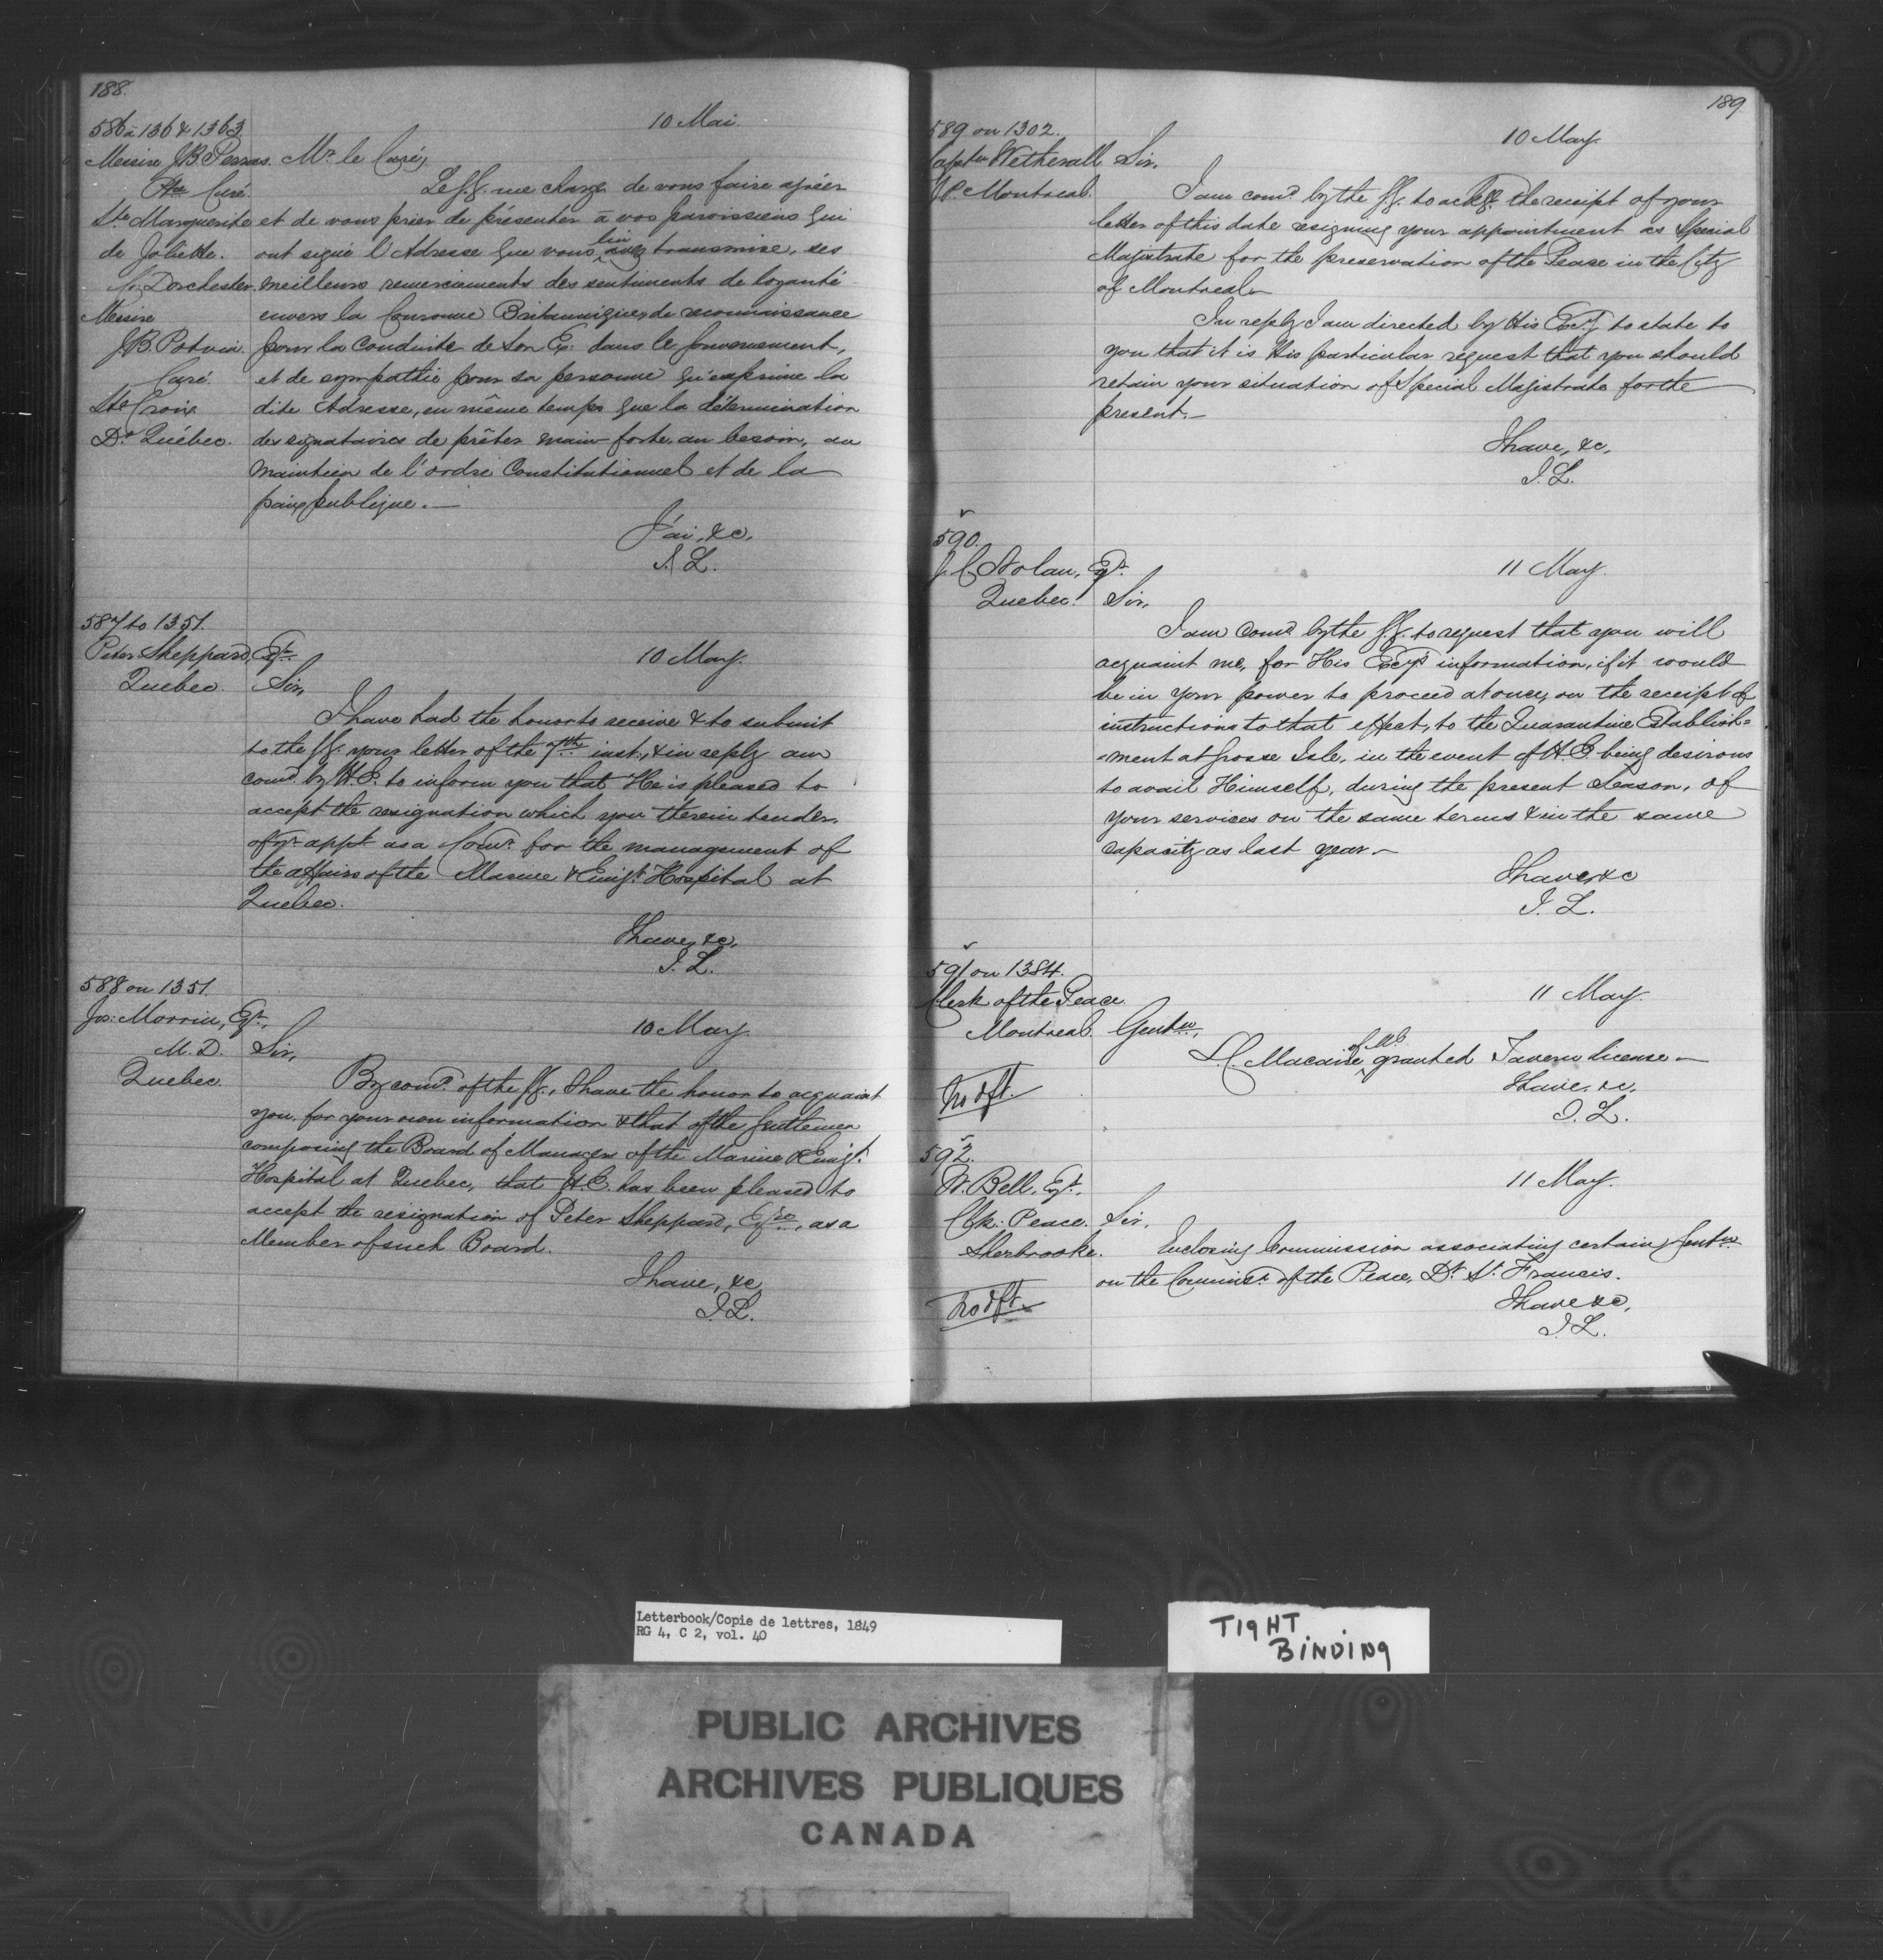 188.
586 à 1364 & 1363.
10 Mai.
Messire J. B. Perras Mr. le Curé,
Ptre Curé
Le G. G. me charge de vous faire agréer
Ste Marguerite et de vous prier de présenter à vos paroissiens qui
de Joliette. ont signé l'Adresse que vous lui avez transmise, ses
Co. Dorchester. meilleurs remerciements des sentiments de loyauté
Messire envers la Couronne Britannique, de reconnaissance
J. B. Potvin. pour la Conduite de Son Ex: dans le Gouvernement,
Curé. et de sympathie pour sa personne qu'exprime la
Ste Croix dite Adresse, en même temps que la détermination
Dt. Québec. des signataires de prêter main-forte, au besoin, au
maintien de l'ordre Constitutionnel et de la
paix publique.—
J'ai, &c.
J. L.
587 to 1351.
Peter Sheppard, Esqr.
10 May.
Quebec. Sir,
I have had the honor to receive & to submit
to the G. G. your letter of the 7th inst., & in reply am
comd. by H. E. to inform you that He is pleased to
accept the resignation which you therein tender,
of yr. appt. as a Comr. for the management of
the affairs of the Marine & Emigt. Hospital at
Quebec.
I have, &c.
J. L.
588 on 1351.
Jos: Morrin, Esqr.,
10 May
M. D. Sir,
Quebec. By comd. of the G. G., I have the honor to acquaint
you, for your own information & that of the Gentlemen
composing the Board of Managers of the Marine & Emigt.
Hospital at Quebec, that H. E. has been pleased to
accept the resignation of Peter Sheppard, Esqre., as a
Member of such Board.
I have, &c,
J. L.
189.
589 on 1302.
10 May.
Captn Wetherall Sir,
J.P. Montreal.
I am comd. by the G. G. to ackge. the receipt of your
letter of this date resigning your appointment as Special
Magistrate for the preservation of the Peace in the City
of Montreal.—
In reply I am directed by His Excy to state to
you that it is His particular request that you should
retain your situation of Special Magistrate for the
present.—
I have, &c.
J. L.
590.
J. C. Nolan, Esqr.
11 May.
Quebec. Sir,
I am comd. by the G. G. to request that you will
acquaint me, for His Excy's information, if it would
be in your power to proceed at once, on the receipt of
instructions to that effect, to the Quarantine Establish=
=ment at Grosse Isle, in the event of H. E. being desirous
to avail Himself, during the present Season, of
your services on the same terms & in the same
capacity as last year.—
I have &c
J. L.
591 on 1384.
Clerk of the Peace
11 May.
Montreal. Gentn,
L. C. Macaire of Ml. granted Tavern license—
I have, &c.
No dft.
J. L.
592.
W. Bell, Esqr.
11 May.
Clk. Peace. Sir,
Sherbrooke. Enclosing Commission associating certain Gentn
on the Commisn. of the Peace, Dt. St. Francis.
I have &c,
No dft.
J. L.
Letterbook/Copie de lettres, 1849
RG 4, C 2, vol. 40
TIGHT
BINDING
PUBLIC ARCHIVES
ARCHIVES PUBLIQUES
CANADA